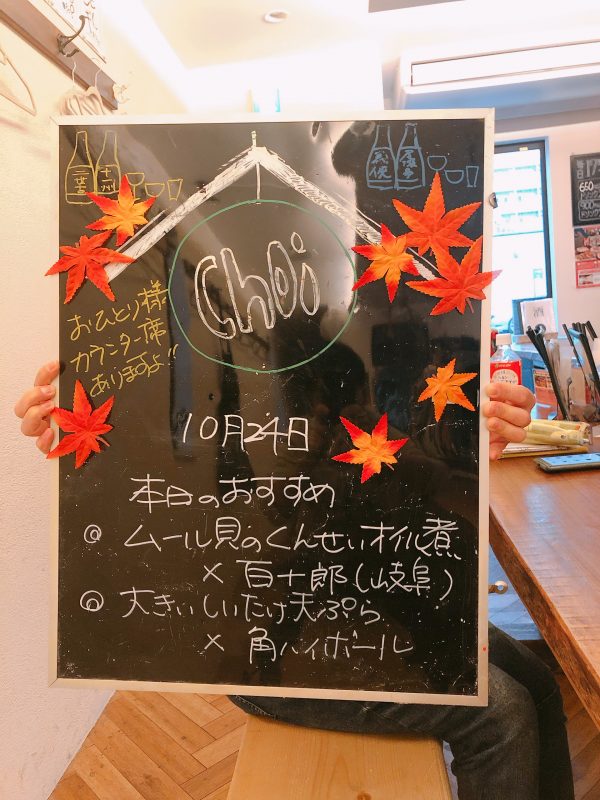 Choi
おひとり様
カウンター席
ありますよ!!
10月24日
本日のおすすめ
◎ ムール貝のくんせいオイル煮
× 百十郎(岐阜)
◎ 大きいしいたけ天ぷら
× 角ハイボール